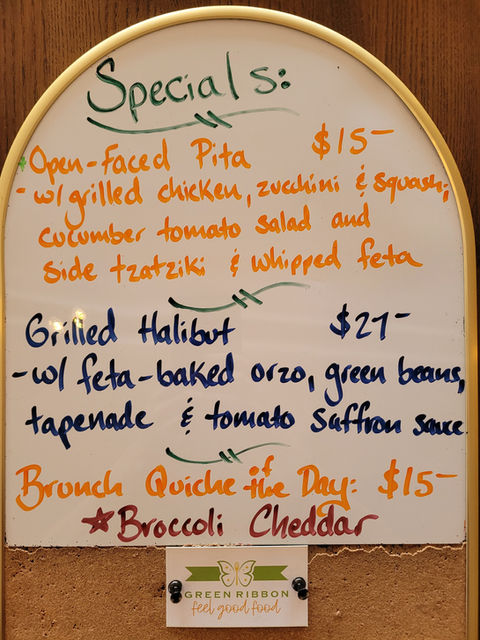 Specials:
Open-Faced Pita $15-
- w/ grilled chicken, zucchini & squash,
cucumber tomato salad and
side tzatziki & whipped feta
Grilled Halibut $27-
- w/ feta-baked orzo, green beans,
tapenade & tomato saffron sauce
Brunch Quiche of the Day: $15-
★Broccoli Cheddar
GREEN RIBBON
feel good food